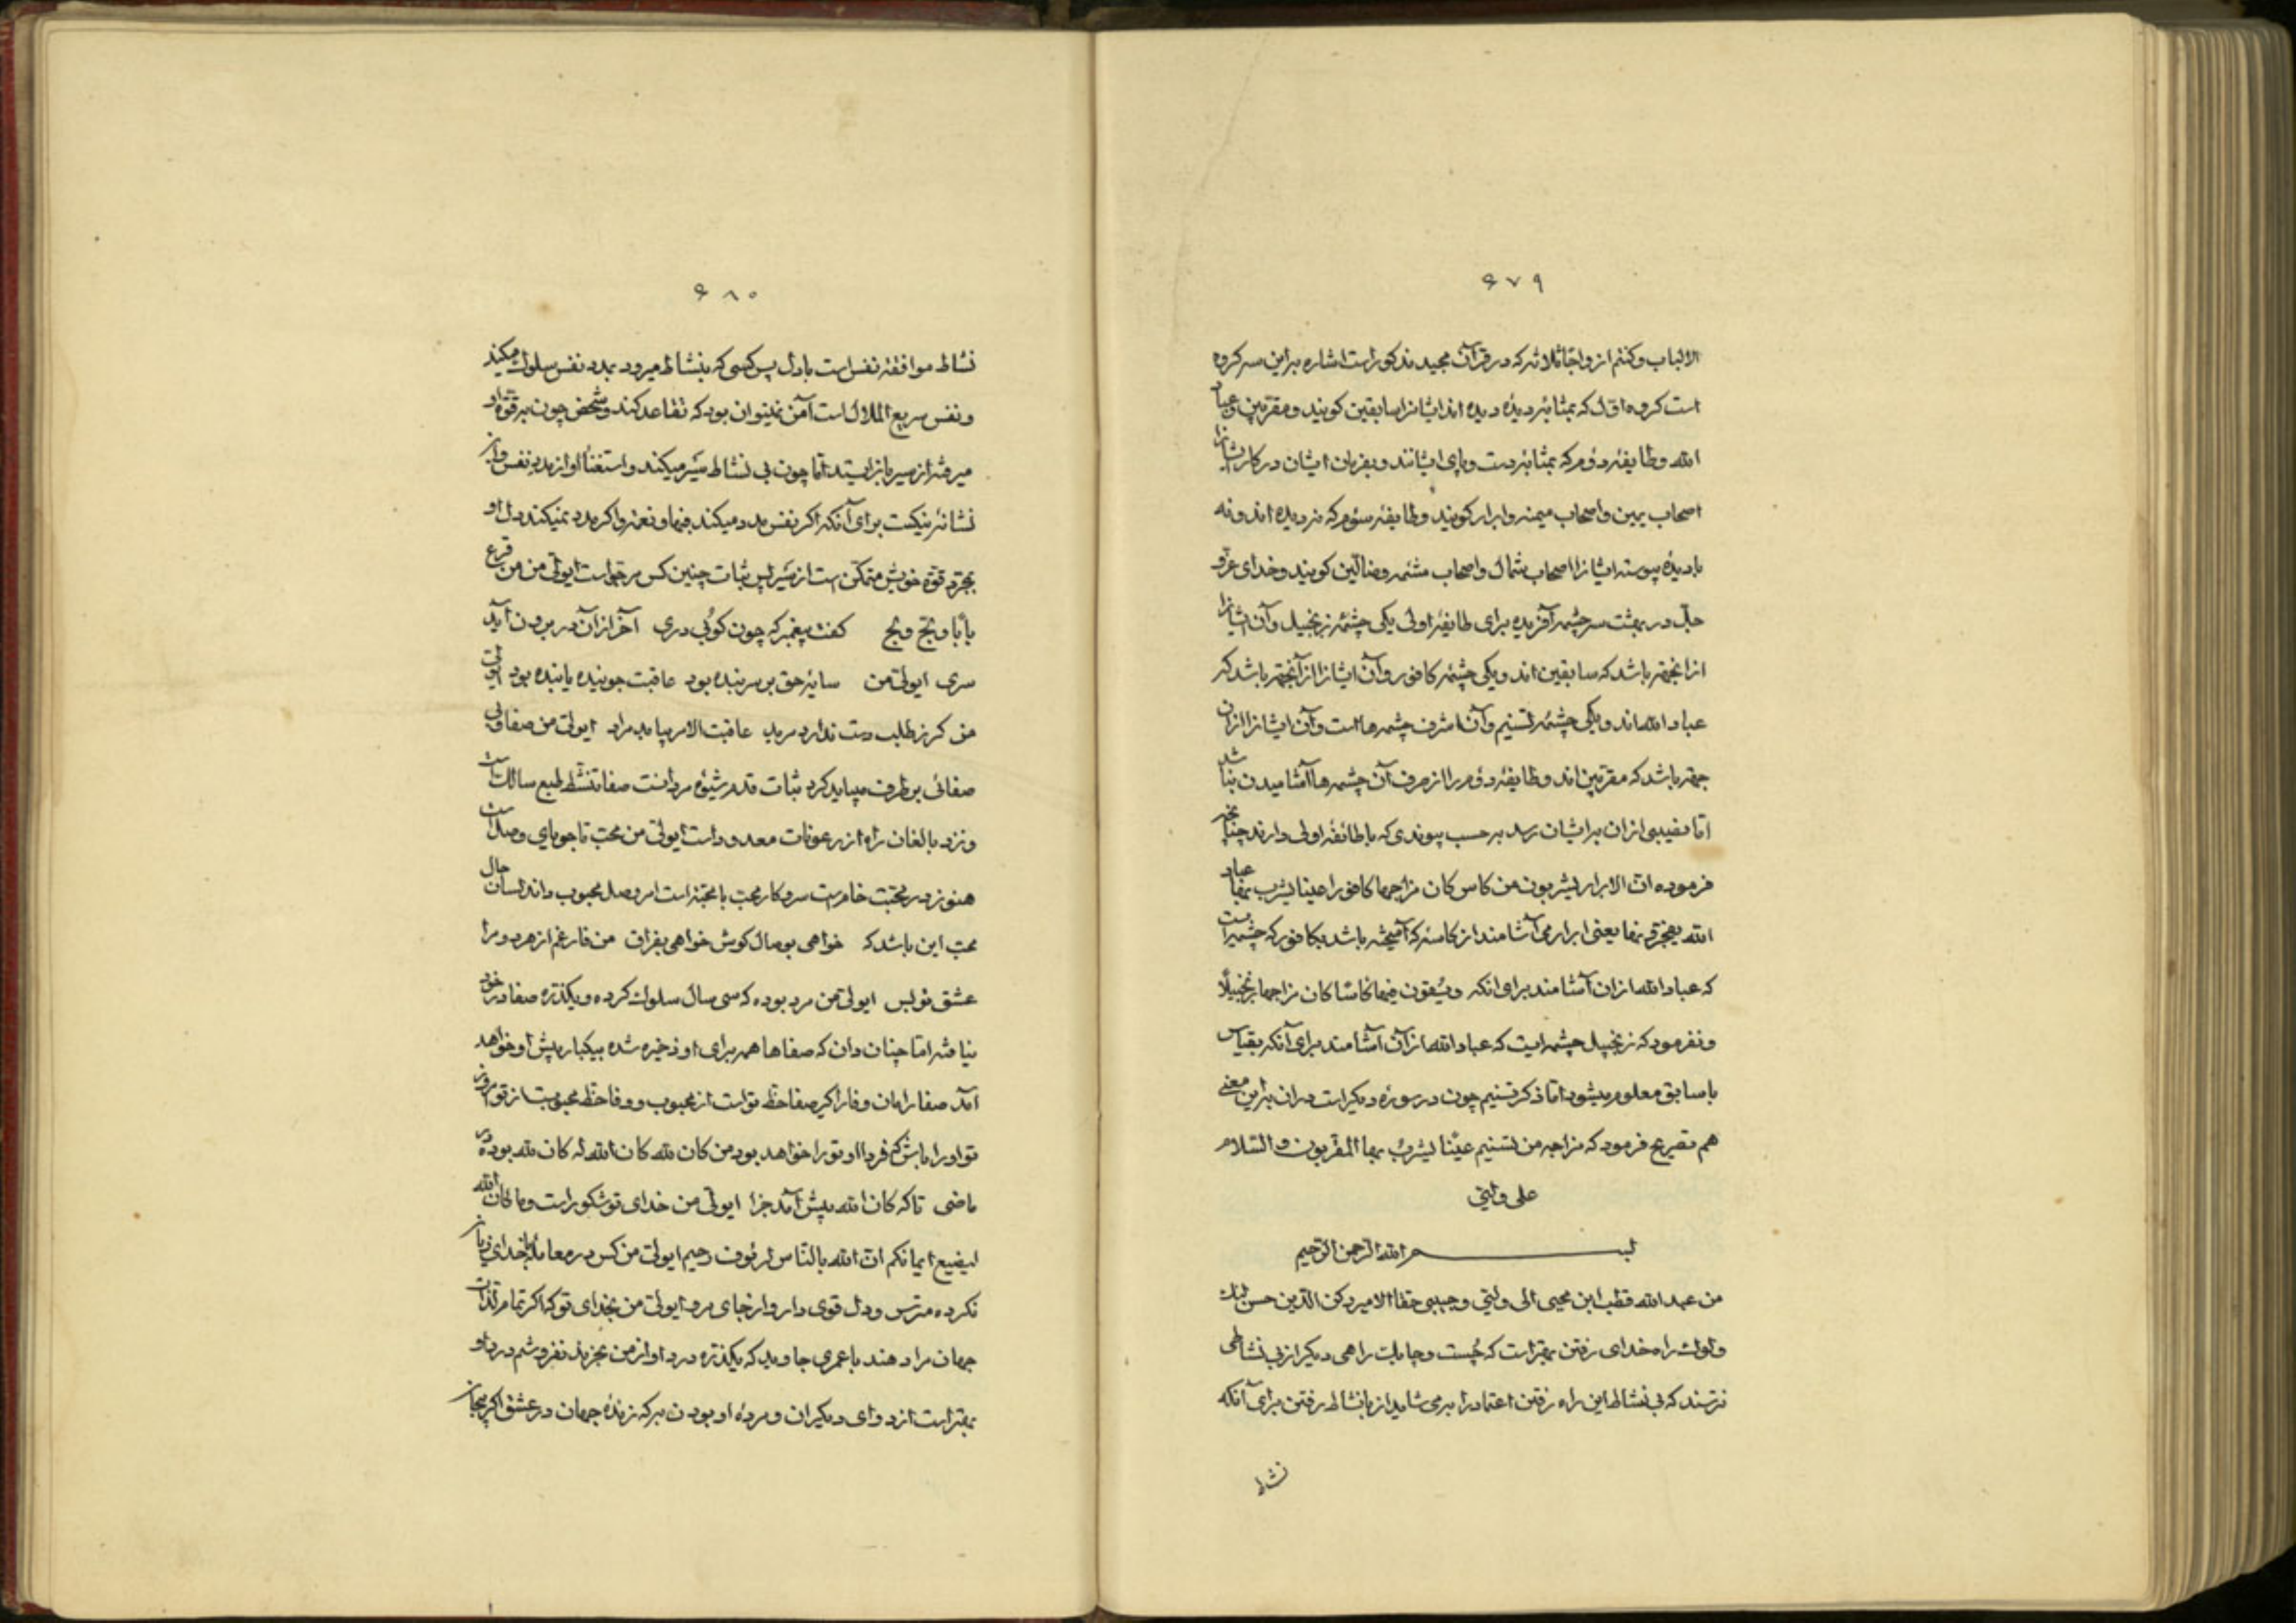 ۶۷۹
الالباب وکنتم ازواجا ثلاثه که در قرآن مجید مذکور است اشاره براین سه کروه
است کروه اول که بمثابۀ دیدۀ دیده اند ایشانرا سابقین کویند و مقربین و عباد
الله و طایفۀ دوم که بمثابۀ دست و پای ایشانند و بفرمان ایشان در کار ایشانرا
اصحاب یمین و اصحاب میمنه و ابرار کویند و طایفۀ سوم که نه دیده اند و نه
بادیده پیوسته ایشانرا اصحاب شمال و اصحاب مشئمه و ضالین کویند و خدای عزّ و
جلّ در بهشت سه چشمه آفریده برای طایفۀ اولی یکی چشمۀ زنجبیل و آن ایشانرا
ازانجهة باشد که سابقین اند و یکی چشمۀ کافور و آن ایشانرا ازآنجهة باشد که
عباد الله اند و یکی چشمۀ تسنیم و آن اشرف چشمه ها است و آن ایشانرا ازان
جهة باشد که مقربین اند و طایفۀ دوم را از صرف آن چشمه ها آشامیدن نباشد
اما نصیبی ازان برایشان رسد بر حسب پیوندی که با طائفۀ اولی دارند چنانچه
فرموده ان الابرار یشربون من کاس کان مزاجها کافورا عینا یشرب بها عباد
الله یفجرونها یعنی ابرار می آشامند از کاسۀ که آمیخته باشد بکافور که چشمه ایست
که عباد الله ازان آشامند برای انکه ویسقون فیها کاسا کان مزاجها زنجبیلاً
ونفرمود که زنجبیل چشمه ایست که عباد الله ازان آشامند برای آنکه بقیاس
باسابق معلوم میشود اما ذکر تسنیم چون در سورۀ دیکر است دران براین معنی
هم تصریح فرمود که مزاجه من تسنیم عیناً یشرب بها المقربون و السّلام
علی ولیّی
بسم الله الرحمن الرحیم
من عبد الله قطب ابن محیی الی ولیّی و حبیبی حقا الامیر رکن الدین حسن
راه خدای رفتن بهتر است که چست و چابک راهی دیکر از بی نشاطی
نترسند که بی نشاط این راه رفتن اعتماد را برمی شاید از بانشاط رفتن برای آنکه
نشاط
۶۸۰
نشاط موافقۀ نفس است بادل پس کسی که بنشاط میرود بمدد نفس سلوک میکند
و نفس سریع الملال است آمن نمیتوان بود که تقاعد کند و شخص چون بر قوّة او
میرفته از سیر بازایستد اما چون بی نشاط سیر میکند و استغناء او از مدد نفس واز
نشانۀ نیکست برای آنکه اکر نفس مدد میکند فبها و نعم و اکر مدد نمیکند دل او
بمجرد قوة خویش متمکن است از سیر پس ثبات چنین کس مرجو است ایولی من من قرع
بابا و لجّ ولج کفت پیغمبر که چون کوبی دری آخر ازان در برون آید
سری ایولی من سایۀ حق بر سر بنده بود عاقبت جوینده یابنده بود ایولی
من کر ز طلب دست ندارد مرید عاقبت الامر بیابد مراد ایولی من صفا و بی
صفائی بر طرف میباید کرد ثبات قدم شیوۀ مردانست صفا تنشّط طبع سالک است
و نزد بالغان راه از رعونات معدود است ایولی من محبّ تا جویای وصال است
هنوز در محبّت خام است سر و کار محبّ با محبّة است امر وصل محبوب داند لسان حال
محبّ این باشد که خواهی بوصال کوش خواهی بفراق من فارغم از هر دو مرا
عشق تو بس ایولی من مرد بوده که سی سال سلوک کرده و یکذرّه صفا در خود
نیافته اما چنان دان که صفاها همه برای او ذخیره شده بیکبار پیش او خواهد
آمد صفا را مان وفا را کیر صفا حظ تو است از محبوب و وفا حظ محبوبست از تو امروز
تو او را باش که فردا او تو را خواهد بود من کان لله کان الله له کان لله بوده در
ماضی تا که کان الله پیش آمد جزا ایولی من خدای تو شکور است وما کان الله
لیضیع ایمانکم ان الله بالناس لرئوف رحیم ایولی من کس در معامله باخدای زیان
نکرده مترس و دل قوی دار و از جای مرو ایولی من بخدای تو که اکر تمام لذات
جهان مرا دهند با عمری جاوید که یکذره درد او از من بخرند نفروشم درد او
بهتر است از دوای دیکران و مردۀ او بودن به که زندۀ جهان در عشق اکر بجان